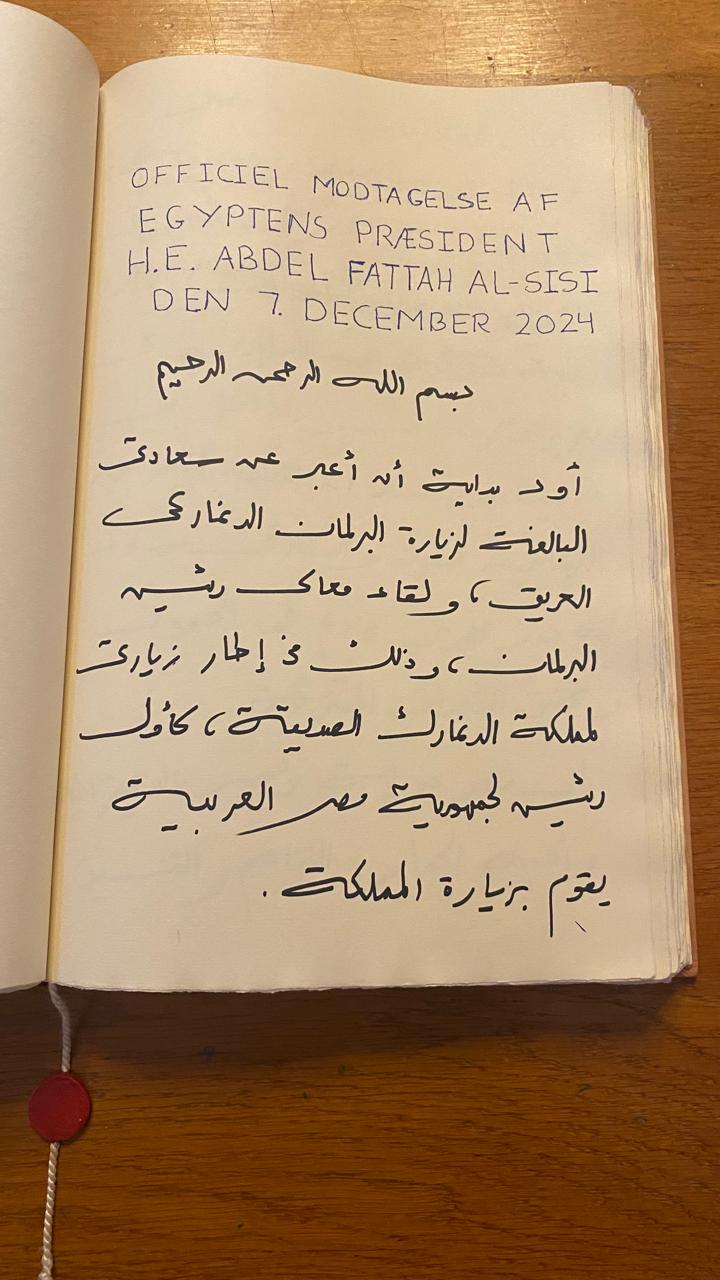 OFFICIEL MODTAGELSE AF
EGYPTENS PRÆSIDENT
H.E. ABDEL FATTAH AL-SISI
DEN 7. DECEMBER 2024
بسم الله الرحمن الرحيم
أود بداية أن أعبر عن سعادتى
البالغة لزيارة البرلمان الدنماركى
العريق، ولقاء معالى رئيس
البرلمان، وذلك فى إطار زيارتى
لمملكة الدنمارك الصديقة، كأول
رئيس لجمهورية مصر العربية
يقوم بزيارة المملكة.